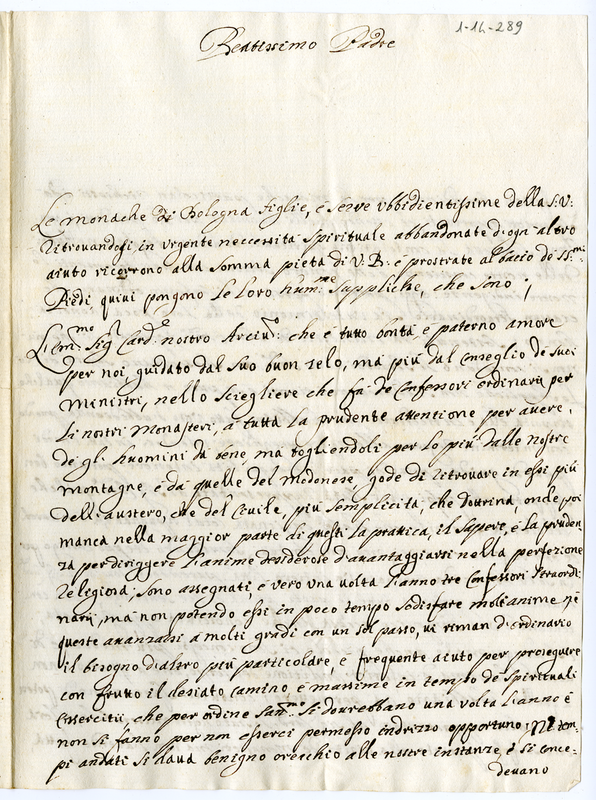 1-16-289
Beatissimo Padre
Le monache di Bologna figlie, e serve ubbidientissime della S: V:
ritrovandosi in urgente neccessità spirituale abbandonate d'ogn'altro
aiuto ricorrono alla somma pietà di V. B: e prostrate al bacio de SS.mi
Piedi, quivi pongono le loro hum.me suppliche, che sono;
L'Em.mo Sig.r Card.e nostro Arciv.o che è tutto bontà, e paterno amore
per noi, guidato dal suo buon zelo, ma più dal conseglio de suoi
Ministri, nello sciegliere che fa de Confessori ordinarii per
li nostri Monasteri, à tutta la prudente attentione per avere
de gl'huomini da bene, ma togliendoli per lo più dalle nostre
montagne, e da quelle del Modonese, gode di ritrovare in essi più
dell'austero, che del Civile, più semplicità, che dottrina, onde poi
manca nella maggior parte di questi la prattica, il sapere, e la pruden-
za per diriggere l'anime desiderose d'avantaggiarsi nella perfezione
religiosa; sono assegnati, è vero una volta l'anno tre Confessori straordi-
narii, mà non potendo essi in poco tempo sodisfare molt'anime nè
queste avanzarsi à molti gradi con un sol passo, vi riman d'ordinario
il bisogno d'altro più particolare, e frequente aiuto per proseguire
con frutto il desiato camino, e massime in tempo de Spirituali
Essercitii, che per ordine San.mo si dovrebbano una volta l'anno e
non si fanno per non esserci permesso indrizzo opportuno. Ne tem-
pi andati si dava benigno orecchio alle nostre instanze, e si conce-
devano